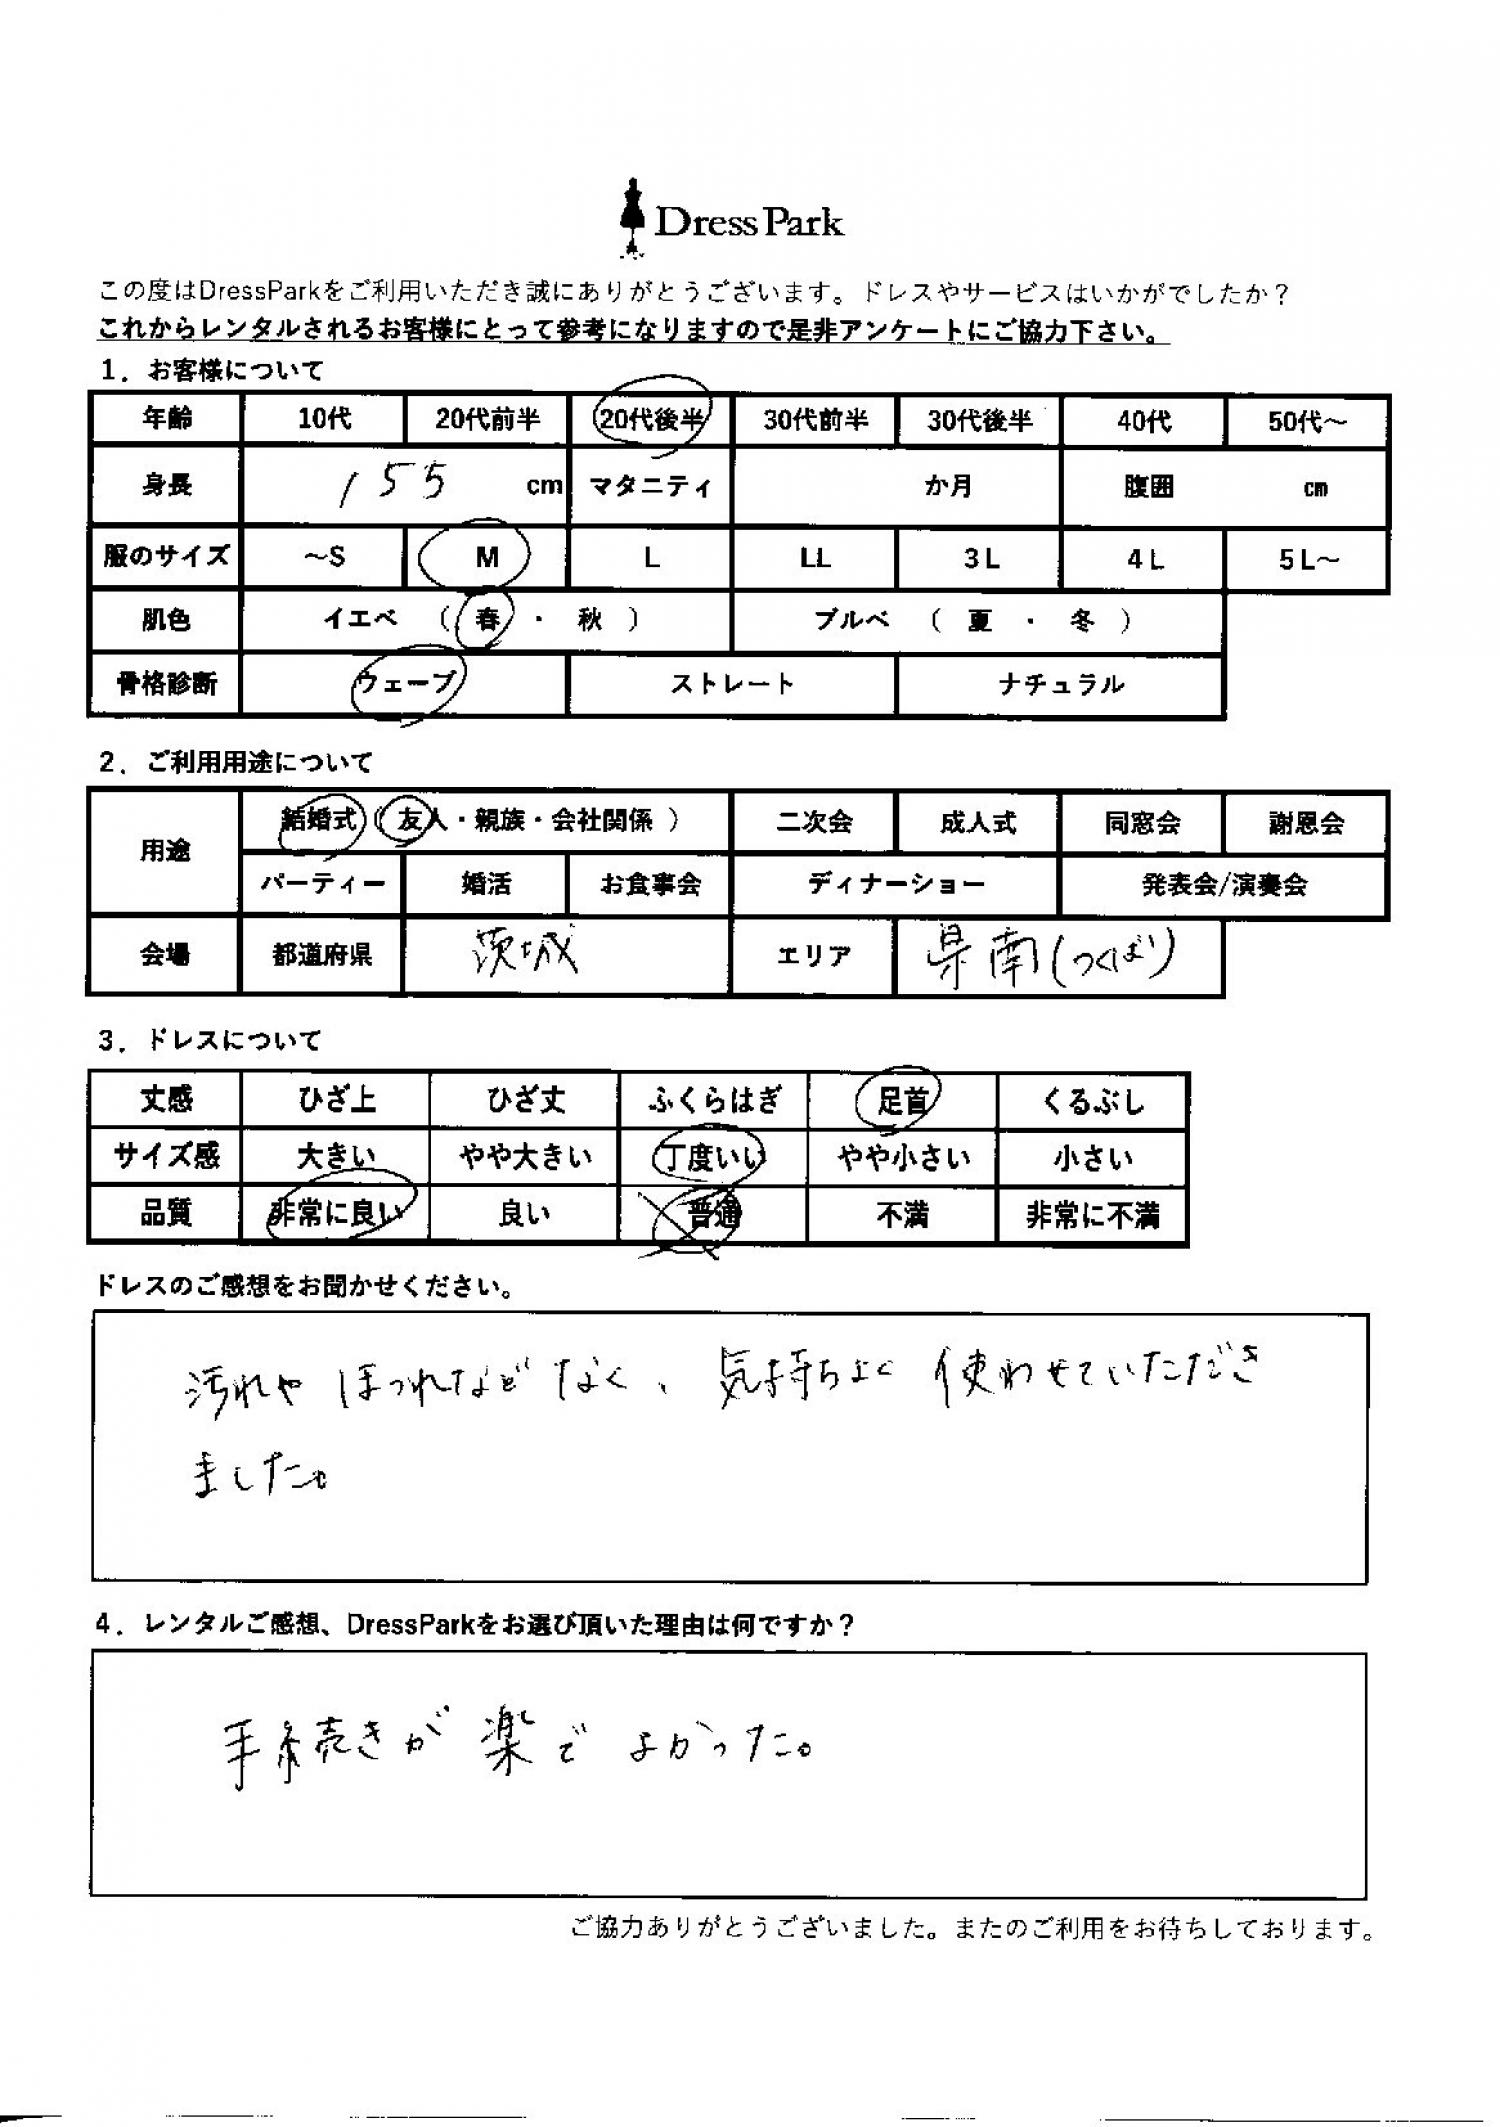 Dress Park
この度はDressParkをご利用いただき誠にありがとうございます。ドレスやサービスはいかがでしたか？
これからレンタルされるお客様にとって参考になりますので是非アンケートにご協力下さい。
1．お客様について
年齢 10代 20代前半 20代後半 30代前半 30代後半 40代 50代～
身長 155 cm マタニティ か月 腹囲 cm
服のサイズ ～S M L LL 3L 4L 5L～
肌色 イエベ （ 春 ・ 秋 ） ブルベ （ 夏 ・ 冬 ）
骨格診断 ウェーブ ストレート ナチュラル
2．ご利用用途について
用途 結婚式（ 友人・親族・会社関係 ） 二次会 成人式 同窓会 謝恩会
パーティー 婚活 お食事会 ディナーショー 発表会/演奏会
会場 都道府県 茨城 エリア 県南（つくば）
3．ドレスについて
丈感 ひざ上 ひざ丈 ふくらはぎ 足首 くるぶし
サイズ感 大きい やや大きい 丁度いい やや小さい 小さい
品質 非常に良い 良い 普通 不満 非常に不満
ドレスのご感想をお聞かせください。
汚れや ほつれなど なく、気持ちよく 使わせていただき
ました。
4．レンタルご感想、DressParkをお選び頂いた理由は何ですか？
手続きが 楽で よかった。
ご協力ありがとうございました。またのご利用をお待ちしております。